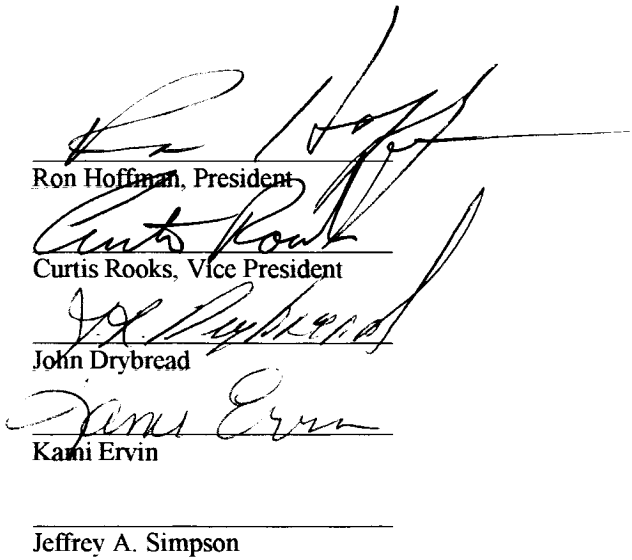 Ron Hoffman
Ron Hoffman, President
Curtis Rooks
Curtis Rooks, Vice President
J.R. Drybread
John Drybread
Kami Ervin
Kami Ervin
Jeffrey A. Simpson